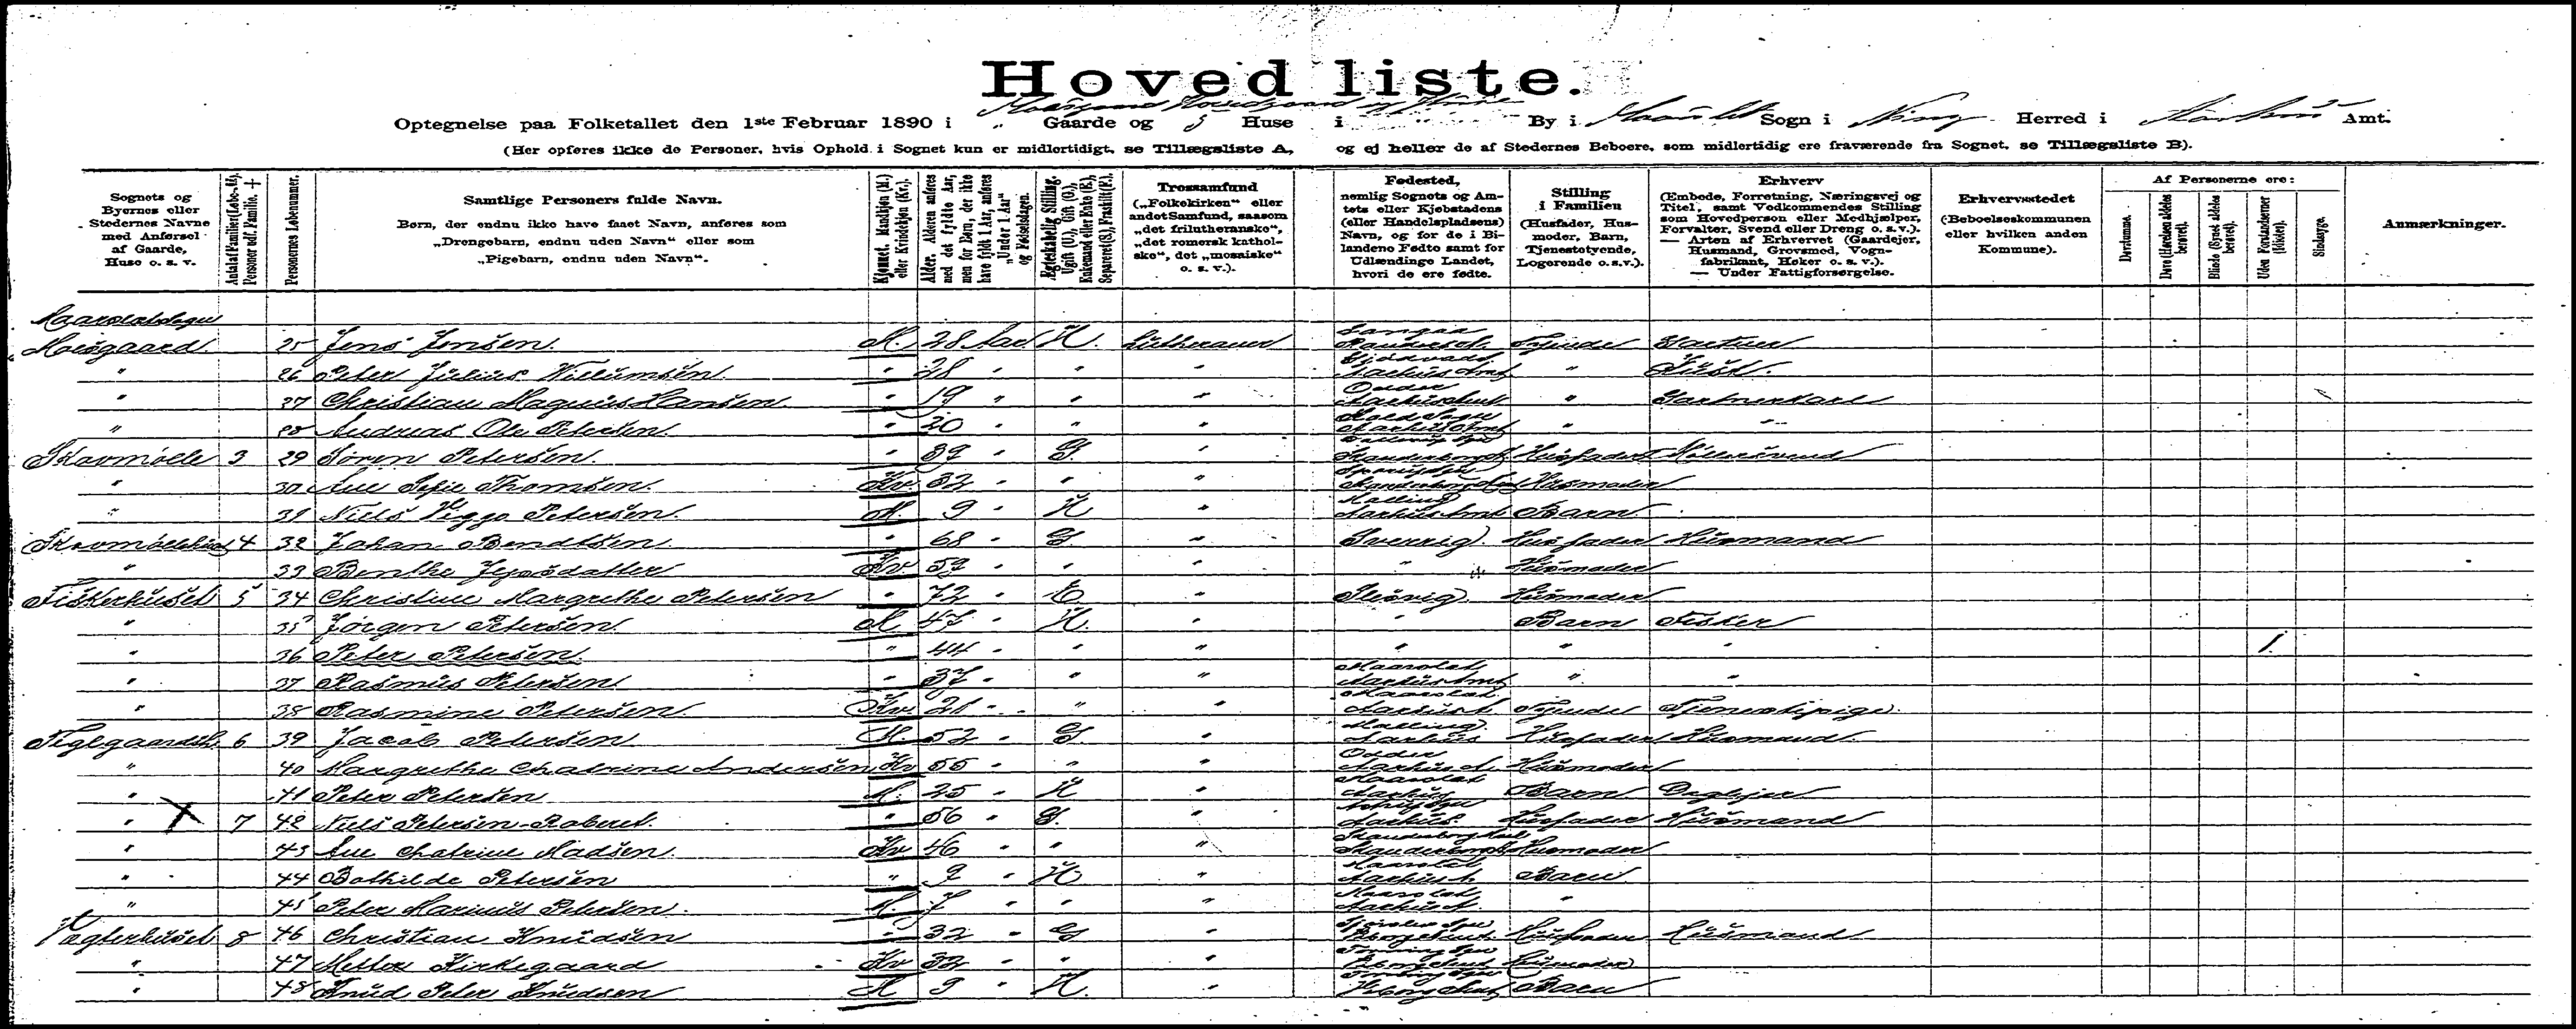 Hovedliste.
Moesgaard Hovedgaard og Huse
Optegnelse paa Folketallet den 1ste Februar 1890 i " Gaarde og 5 Huse i By i Maarslet Sogn i Ning Herred i Aarhus Amt.
(Her opføres ikke de Personer, hvis Ophold i Sognet kun er midlertidigt, se Tillægsliste A, og ej heller de af Stedernes Beboere, som midlertidig ere fraværende fra Sognet, se Tillægsliste B).
Sognets og Byernes eller Stedernes Navne med Anførsel af Gaarde, Huse o. s. v.
Antal af Familier (Løbe-№). Personer odf. Familie. +
Personernes Løbenummer.
Samtlige Personers fulde Navn.
Børn, der endnu ikke have faaet Navn, anføres som „Drengebarn, endnu uden Navn“ eller som „Pigebarn, endnu uden Navn“.
Kjønnet. Mandkjøn (M.) eller Kvindekjøn (Kv.).
Alder. Alderen anføres med det fyldte Aar, men for Børn, der ikke have fyldt 1 Aar, anføres „Under 1 Aar“ og Fødselsdagen.
Ægteskabelig Stilling. Ugift (U.), Gift (G.), Enkemand eller Enke (E.), Separeret (S.), Fraskilt (F.).
Trossamfund
(„Folkekirken“ eller andet Samfund, saasom „det frilutheranske“, „det romersk katholske“, det „mosaiske“ o. s. v.).
Fødested,
nemlig Sognets og Amtets eller Kjøbstadens (eller Handelspladsens) Navn, og for de i Bilandene Fødte samt for Udlændinge Landet, hvori de ere fødte.
Stilling i Familien
(Husfader, Husmoder, Barn, Tjenestetyende, Logerende o.s.v.).
Erhverv
(Embede, Forretning, Næringsvej og Titel, samt Vedkommendes Stilling som Hovedperson eller Medhjælper, Forvalter, Svend eller Dreng o. s. v.). — Arten af Erhvervet (Gaardejer, Husmand, Grovsmed, Vognfabrikant, Høker o. s. v.). — Under Fattigforsørgelse.
Erhvervsstedet
(Beboelseskommunen eller hvilken anden Kommune).
Af Personerne ere:
Døvstumme.
Døve (Hørelsen aldeles berøvet).
Blinde (Synet aldeles berøvet).
Uden Forstandsevner (Idioter).
Sindssyge.
Anmærkninger.
Maarslet Sogn
Moesgaard 25 Jens Jensen. M. 28 Aar U. Lutheraner Langaa Tyende
" 26 Peter Julius Willumsen " 28 " " " Aarhus Amt "
" 27 Christian Magnus Hansen " 19 " " " Odder Aarhus Amt " Gartnerkarl
" 28 Andreas Ole Petersen. " 20 " " " Aarhus Amt " "
Skovmølle 3 29 Søren Petersen. " 39 " G. " Skanderborg A. Husfader Møllersvend
" 30 Ane Sofie Thomsen. Kv 32 " " " Skanderborg Husmoder
" 31 Niels Viggo Petersen. M 9 " U " Malling Aarhus Amt Barn
Skovmøllehus 4 32 Johan Bendtsen " 68 " G " Sverrig Husfader Husmand
" 33 Benthe Jepsdatter Kv 52 " " " " Husmoder
Fiskerhuset 5 34 Christine Margrethe Petersen " 72 " E " Slesvig Husmoder
" 35 Jörgen Petersen. M 47 " U. " " Barn Fisker
" 36 Peter Petersen. " 44 " " " " " " 1.
" 37 Rasmus Petersen " 37 " " " Maarslet Aarhus Amt " "
" 38 Rasmine Petersen. Kv 21 " " " Maarslet Aarhus A. Tyende Tjenestepige
Teglgaardsh. 6 39 Jacob Petersen M. 52 " G " Malling Aarhus Husfader Husmand
" 40 Margrethe Chatrine Andersen Kv 55 " " " Odder Aarhus A. Husmoder
" 41 Peter Petersen M. 25 " U " Maarslet Aarhus Barn Daglejer
" X 7 42 Niels Petersen-Roberet. " 56 " G. " Aarhus Husfader Husmand
" 43 Ane Chatrine Madsen. Kv 46 " " " Skanderborg Husmoder
" 44 Bothilde Petersen " 9 " U " Maarslet Aarhus A. Barn
" 45 Peter Marinus Petersen. M. 7 " " " Maarslet Aarhus A. "
Vogterhuset 8 46 Christian Knudsen " 32 " G " Viborg Amt Husfader Husmand
" 47 Mette Kirkegaard Kv 32 " " " Viborg Amt Husmoder
" 48 Knud Peter Knudsen M 9 " U. " Viborg Amt Barn